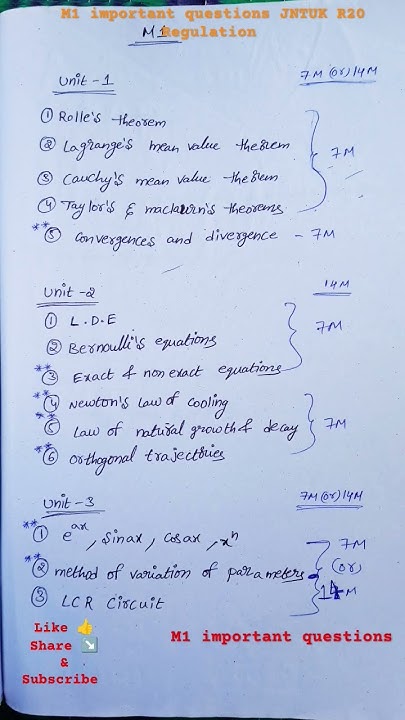 M1 important questions JNTUK R20
Regulation
M1
Unit-1 7M (or) 14M
① Rolle's theorem
② Lagrange's mean value theorem
③ Cauchy's mean value theorem
④ Taylor's & maclaurin's theorems
7M
** ⑤ Convergences and divergence - 7M
Unit-2 14M
① L.D.E
② Bernoulli's equations
** ③ Exact & non exact equations
7M
** ④ Newton's law of cooling
** ⑤ Law of natural growth & decay
** ⑥ Orthogonal trajectories
7M
Unit-3 7M (or) 14M
** ① e^ax, Sinax, Cosax, x^n
** ② method of variation of parameters
③ LCR Circuit
7M
(or)
14M
Like 👍
Share ↘️
&
Subscribe
M1 important questions